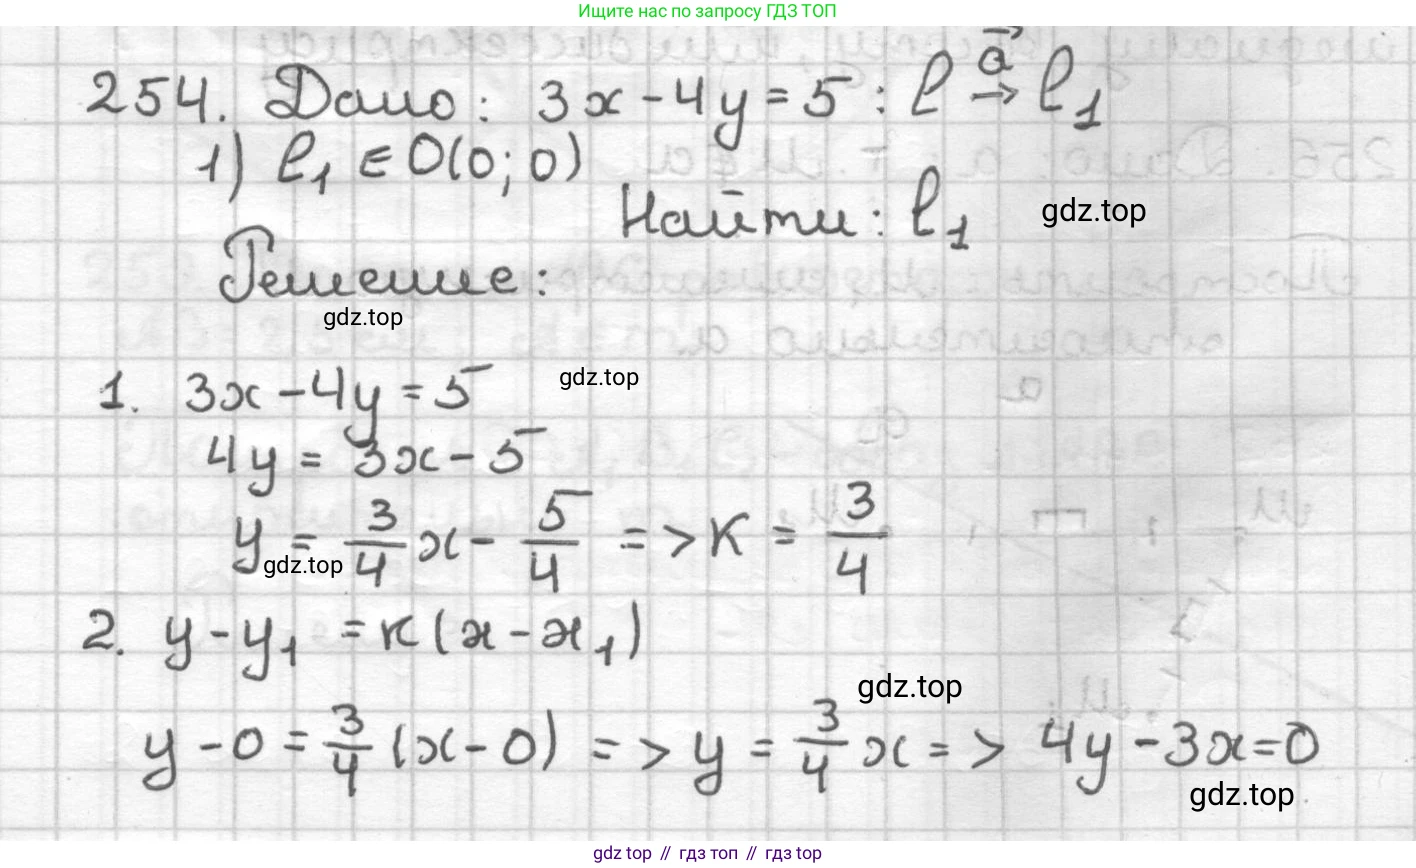 Ищите нас по запросу ГДЗ ТОП
254. Дано: 3x - 4y = 5 : l →(a⃗) l₁
1) l₁ ∈ O(0; 0)
Найти: l₁
gdz.top
Решение:
gdz.top
1. 3x - 4y = 5
gdz.top
4y = 3x - 5
y = 3/4 x - 5/4 => K = 3/4
gdz.top
2. y - y₁ = к(x - x₁)
gdz.top
y - 0 = 3/4 (x - 0) => y = 3/4 x => 4y - 3x = 0
gdz.top
gdz top // гдз топ // gdz top